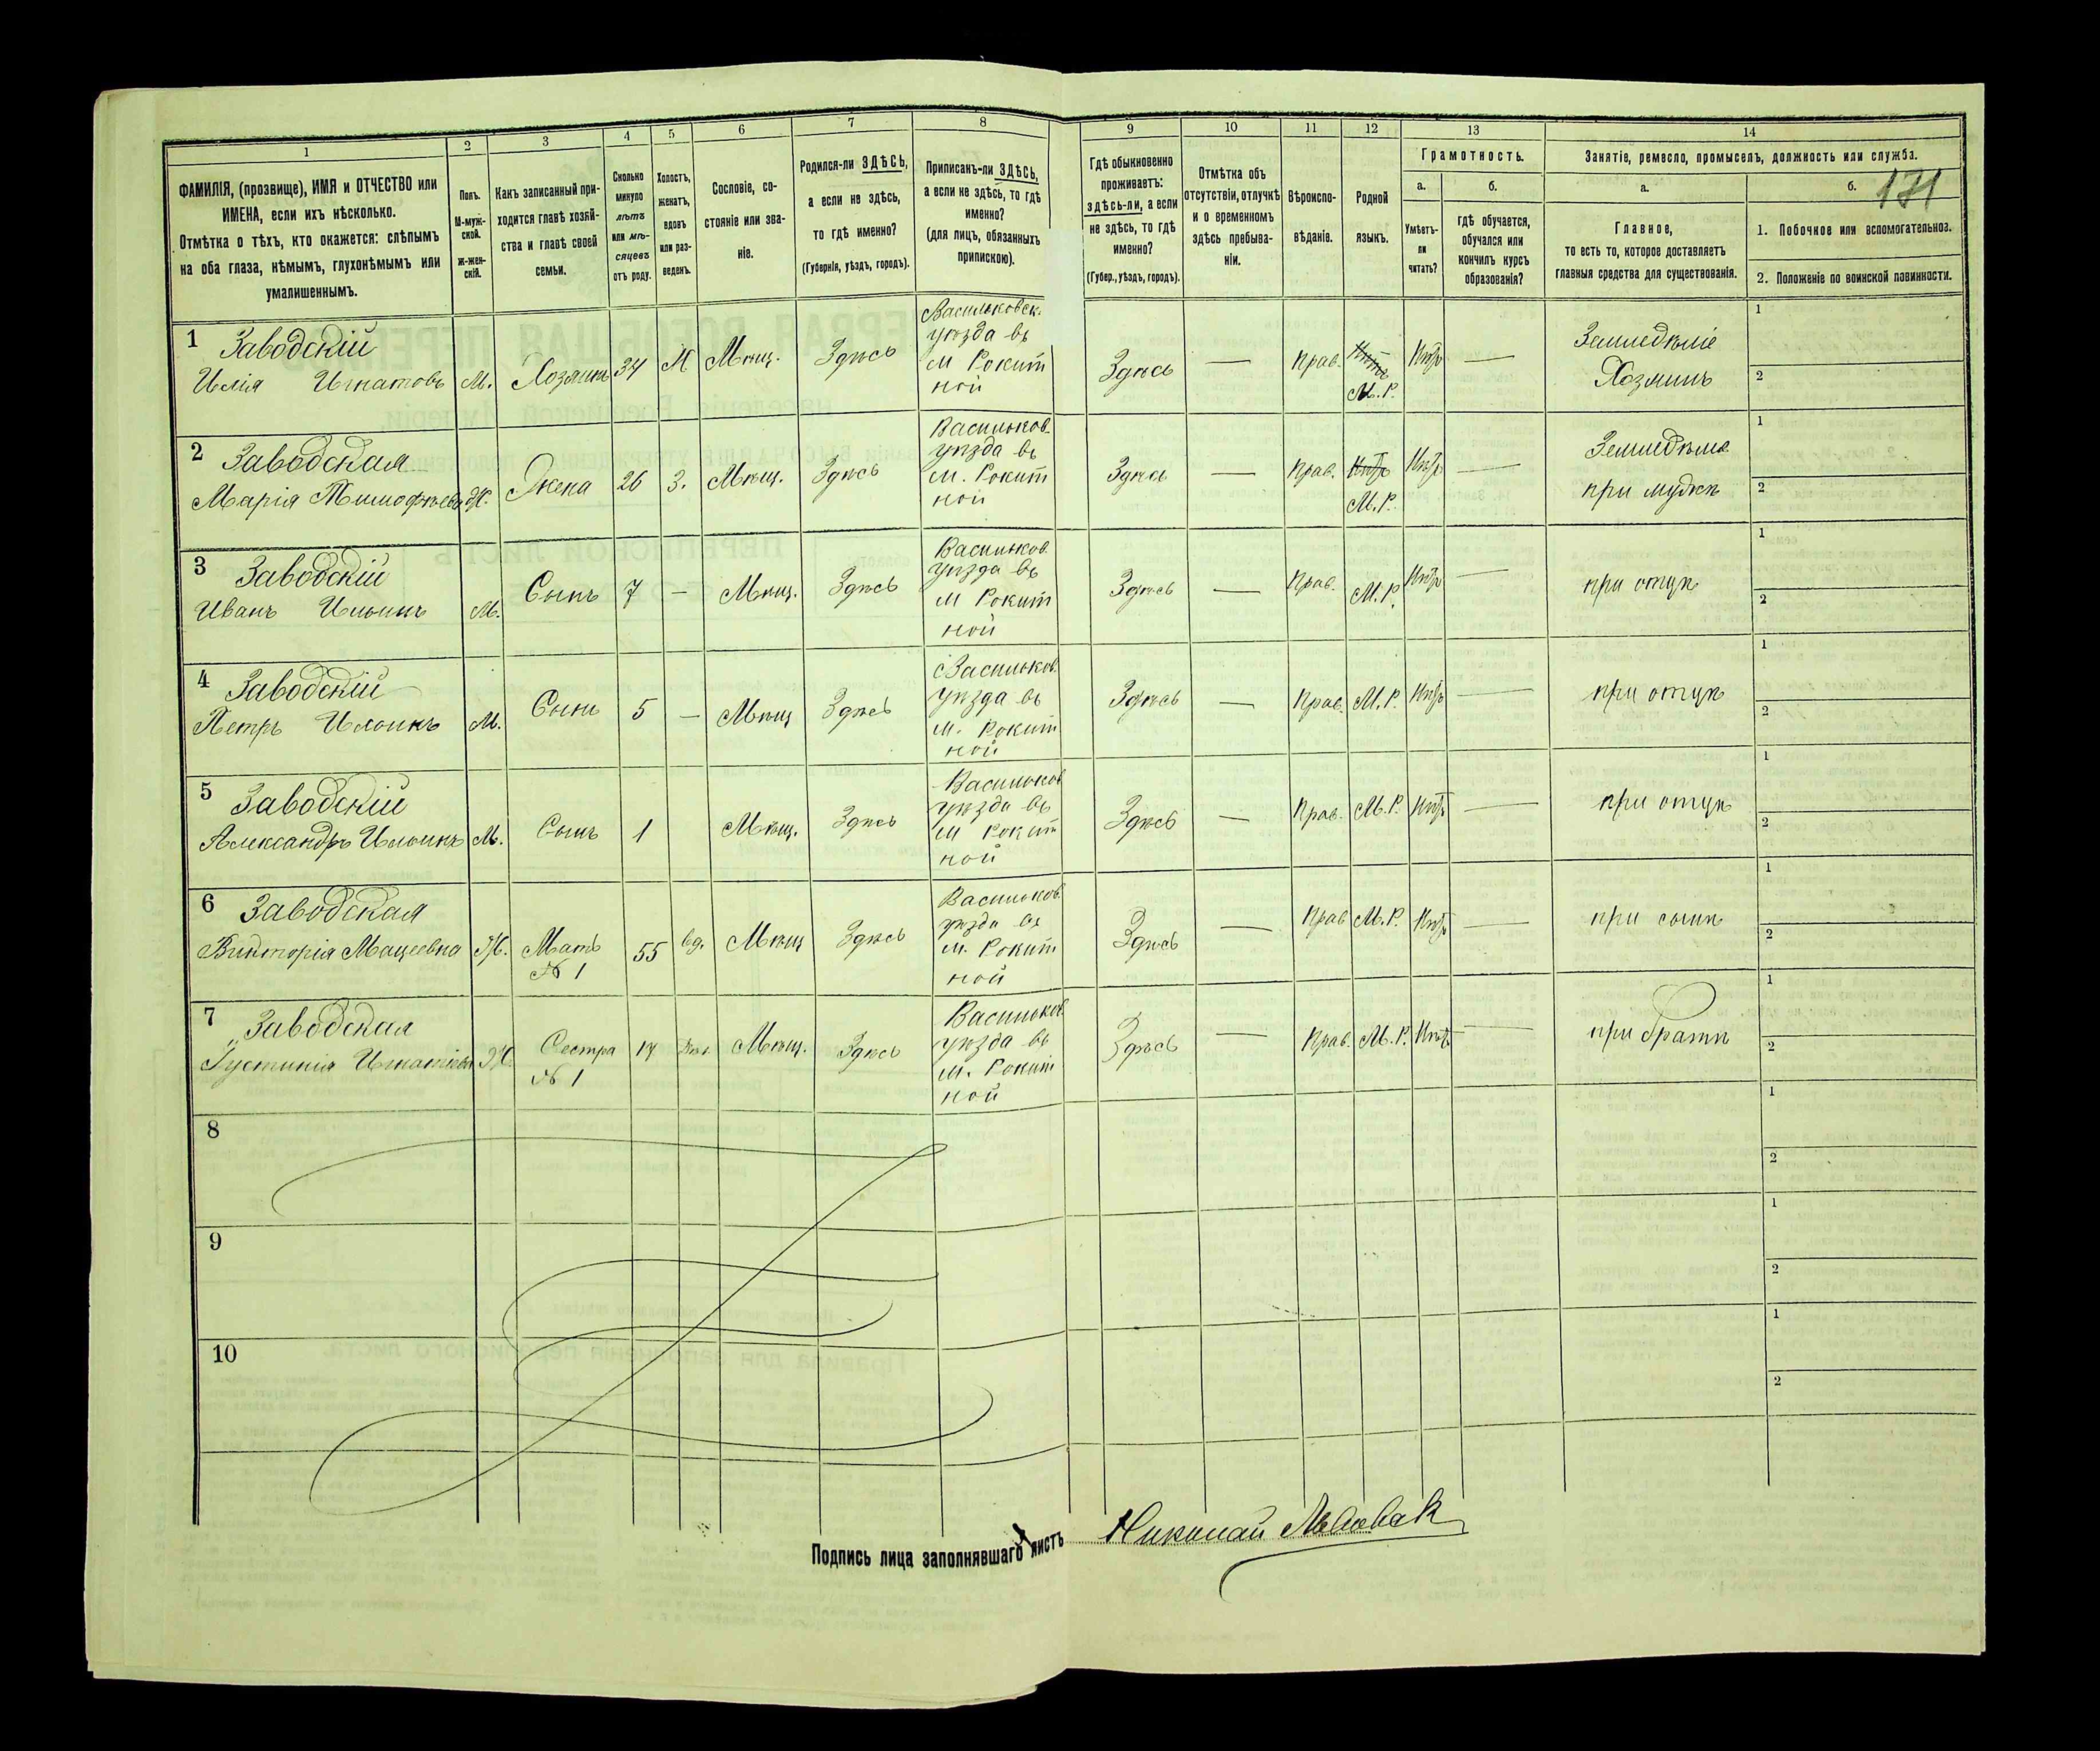 171
1 2 3 4 5 6 7 8 9 10 11 12 13 14
ФАМИЛІЯ, (прозвище), ИМЯ и ОТЧЕСТВО или
ИМЕНА, если ихъ нѣсколько.
Отмѣтка о тѣхъ, кто окажется: слѣпымъ
на оба глаза, нѣмымъ, глухонѣмымъ или
умалишеннымъ.
Полъ.
М-муж-
ской.
Ж-жен-
скій.
Какъ записанный при-
ходится главѣ хозяй-
ства и главѣ своей
семьи.
Сколько
минуло
лѣтъ
или мѣ-
сяцевъ
отъ роду.
Холостъ,
женатъ,
вдовъ
или раз-
веденъ.
Сословіе, со-
стояніе или зва-
ніе.
Родился-ли ЗДѢСЬ,
а если не здѣсь,
то гдѣ именно?
(Губернія, уѣздъ, городъ).
Приписанъ-ли ЗДѢСЬ,
а если не здѣсь, то гдѣ
именно?
(для лицъ, обязанныхъ
припискою).
Гдѣ обыкновенно
проживаетъ:
здѣсь-ли, а если
не здѣсь, то гдѣ
именно?
(Губер., уѣздъ, городъ).
Отмѣтка объ
отсутствіи, отлучкѣ
и о временномъ
здѣсь пребыва-
ніи.
Вѣроиспо-
вѣданіе.
Родной
языкъ.
Грамотность.
а.
Умѣетъ-
ли
читать?
б.
гдѣ обучается,
обучался или
кончилъ курсъ
образованія?
Занятіе, ремесло, промыселъ, должность или служба.
а.
Главное,
то есть то, которое доставляетъ
главныя средства для существованія.
б.
1. Побочное или вспомогательное.
2. Положеніе по воинской повинности.
1 Заводскій
Илія Игнатовъ М. Хозяинъ 34 Мѣщ. Здѣсь
Васильковск.
уѣзда въ
м Рокит
ной
Здѣсь — Прав. Нѣтъ
М.Р. Нѣтъ —
Земледѣліе
Хозяинъ
1
2
2 Заводская
Марія Тимофѣева Ж. Жена 26 З. Мѣщ. Здѣсь
Васильков.
уѣзда въ
м. Рокит
ной
Здѣсь — Прав. Нѣтъ
М.Р. Нѣтъ —
Земледѣліе
при мужѣ
1
2
3 Заводскій
Иванъ Ильинъ М. Сынъ 7 — Мѣщ. Здѣсь
Васильков.
уѣзда въ
м Рокит
ной
Здѣсь — Прав. М.Р. Нѣтъ —
при отцѣ
1
2
4 Заводскій
Петръ Ильинъ М. Сынъ 5 — Мѣщ Здѣсь
Васильков.
уѣзда въ
м. Рокит
ной
Здѣсь — Прав. М.Р. Нѣтъ —
при отцѣ
1
2
5 Заводскій
Александръ Ильинъ М. Сынъ 1 Мѣщ. Здѣсь
Васильков
уѣзда въ
м Рокит
ной
Здѣсь — Прав. М.Р. Нѣтъ —
при отцѣ
1
2
6 Заводская
Викторія Мацеевна Ж. Мать
№ 1
55 вд. Мѣщ Здѣсь
Васильков.
уѣзда въ
м. Рокит
ной
Здѣсь — Прав М.Р. Нѣтъ —
при сынѣ
1
2
7 Заводская
Густинія Ж. Сестра
№ 1
Мѣщ. Здѣсь
Васильков
уѣзда въ
м. Рокит
ной
Здѣсь — Прав. М.Р. Нѣтъ —
при братѣ
1
2
8
1
2
9
1
2
10
1
2
Подпись лица заполнявшаго листъ Николай